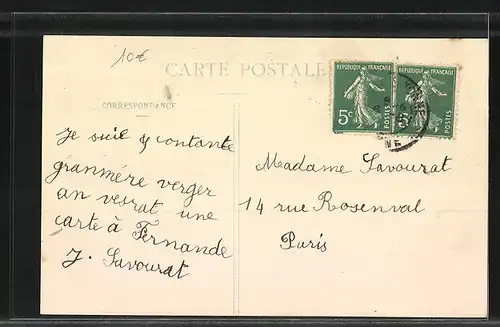 10€
CARTE POSTALE
CORRESPONDANCE
REPUBLIQUE FRANÇAISE
5c
POSTES
REPUBLIQUE FRANÇAISE
5c
POSTES
Je suie contante
granmére verger
an vesrat une
carte à Fernande
J. Savourat
Madame Savourat
14 rue Rosenval
Paris